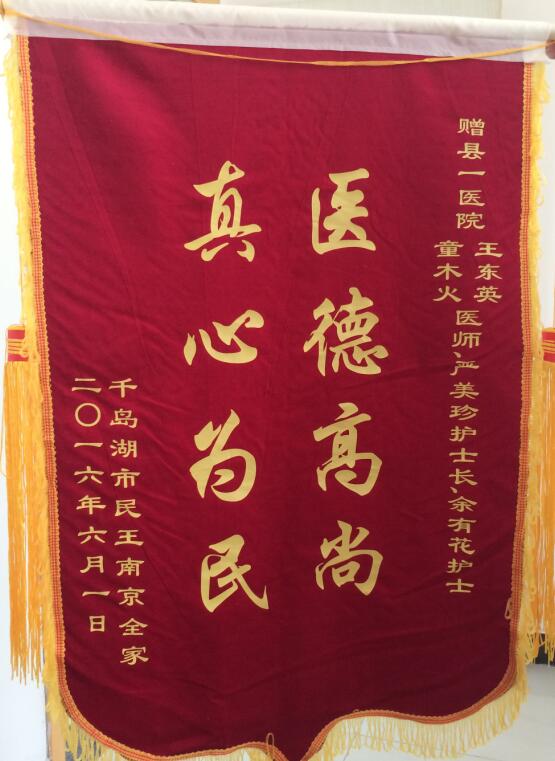 赠县一医院
王东英
童木火
医师、严美珍护士长、余有花护士
医德高尚
真心为民
千岛湖市民王南京全家
二〇一六年六月一日